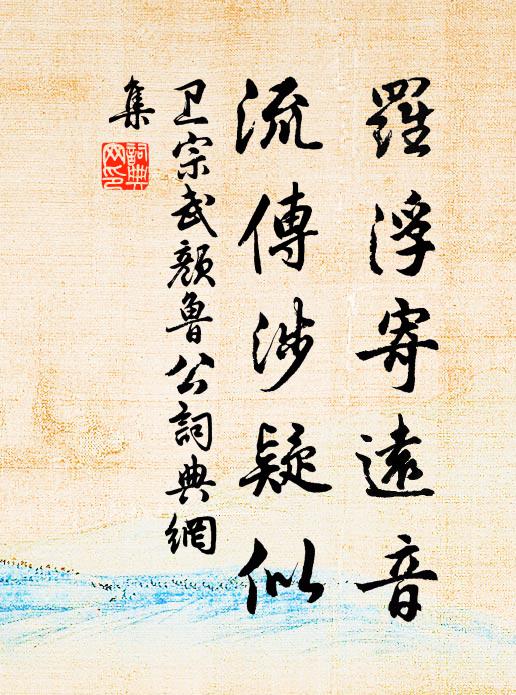 羅浮寄遠音
流傳涉疑似
卫宗武顏魯公詞典網
集
詞典网印